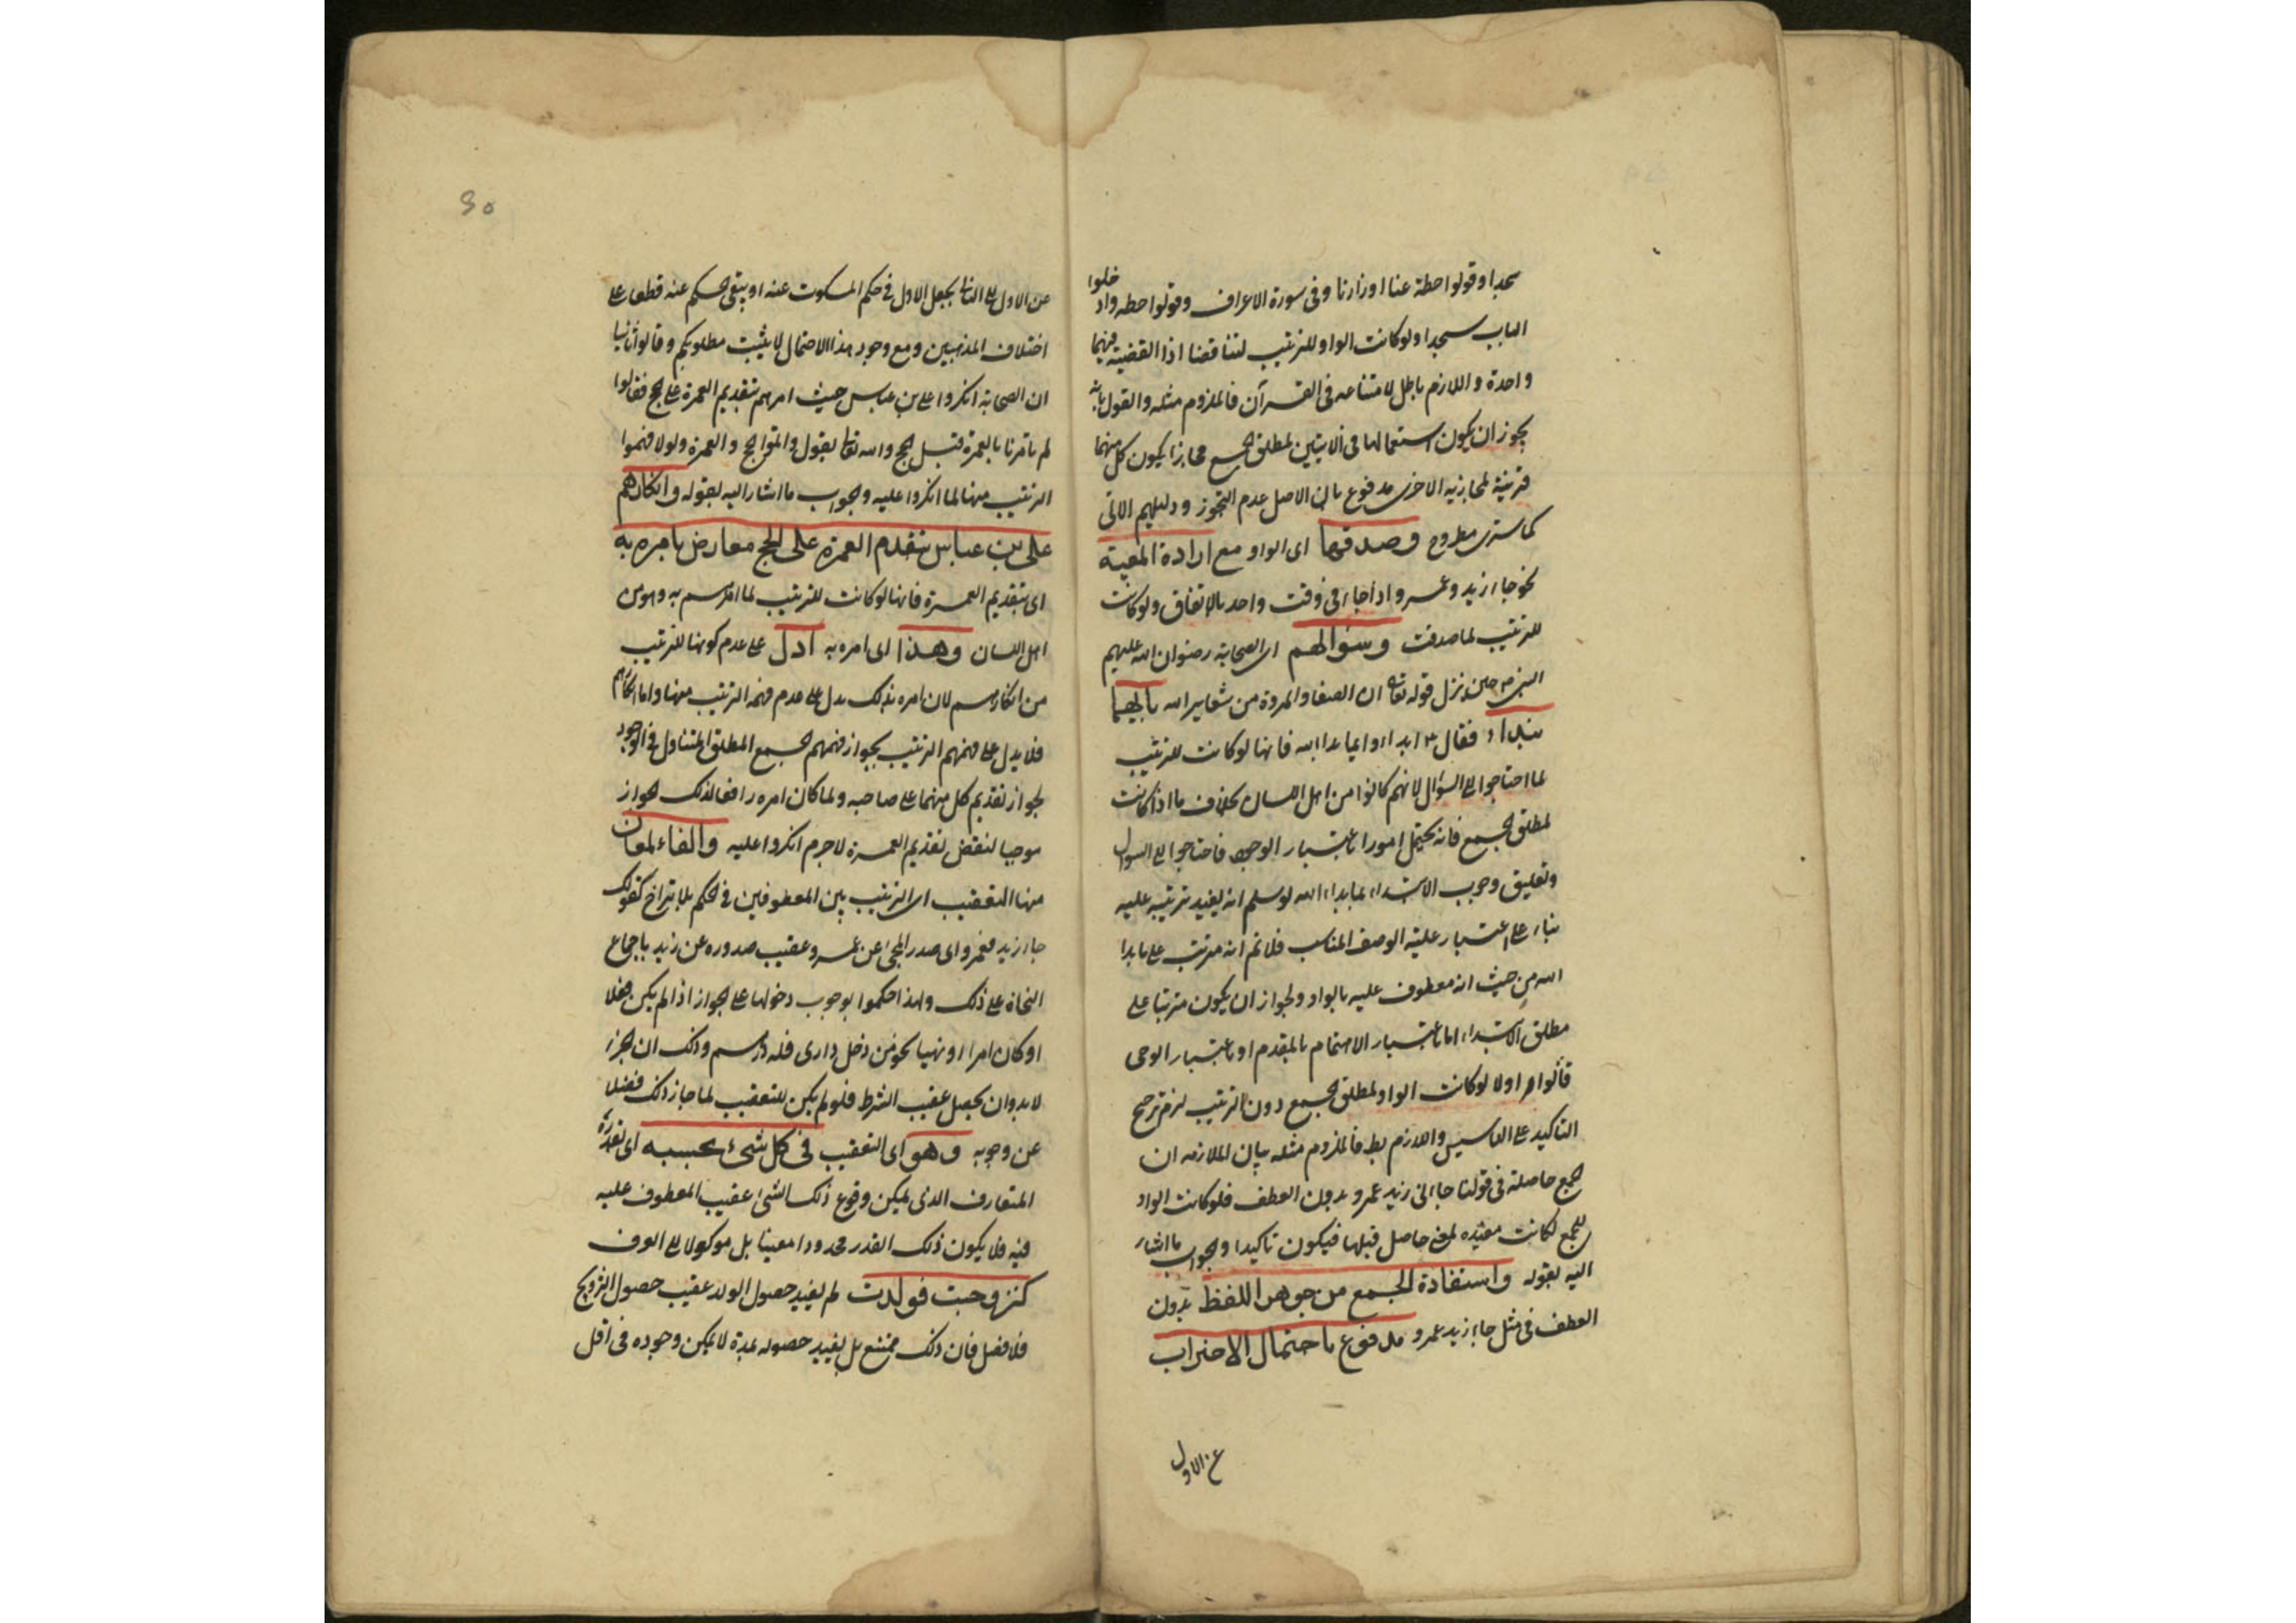 سجدا وقولوا حطة عنا اوزارنا وفى سورة الاعراف وقولوا حطه وادخلوا
الباب سجدا ولو كانت الواو للترتيب لتناقضتا اذا القضية فيهما
واحدة واللازم باطل لامتناعه فى القرآن فالملزوم مثله والقول بانه
يجوز ان يكون استعمالها فى الايتين لمطلق الجمع مجازا يكون كل منهما
قرينة لمجازيه الاخرى مدفوع بان الاصل عدم التجوز ودليلهم الاتى
كما سترى مطروح وصدقها اى الواو مع ارادة المعية
نحو جاء زيد وعمرو اذا جاءا فى وقت واحد بالاتفاق ولو كانت
للترتيب لما صدقت وسؤالهم اى الصحابة رضوان الله عليهم
النبى ص حين نزل قوله تعالى ان الصفا والمروة من شعاير الله بايهما
نبداء فقال ابدءوا بما بدا الله فانها لو كانت للترتيب
لما احتاجوا الى السؤال لانهم كانوا من اهل اللسان بخلاف ما اذا كانت
لمطلق الجمع فانه يحتمل امورا باعتبار الوجود فاحتاجوا الى السوال
وتعليق وجوب الابتداء بما بداء الله لو سلم انه يفيد ترتبه عليه
بناء على اعتبار علية الوصف المناسب فلا نم انه مترتب على ما بدا
الله من حيث انه معطوف عليه بالواو ولجواز ان يكون مترتبا على
مطلق الابتداء اما باعتبار الاهتمام بالمقدم او باعتبار الوحى
قالوا اولا لو كانت الواو لمطلق الجمع دون الترتيب لزم ترجيح
التاكيد على التاسيس واللازم بط فالملزوم مثله بيان الملازمه ان
الجمع حاصلة فى قولنا جاانى زيد عمرو بدون العطف فلو كانت الواو
للجمع لكانت مفيده لمعنى حاصل قبلها فيكون تاكيدا والجواب ما اشار
اليه بقوله واستفادة الجمع من جوهر اللفظ بدون
العطف فى مثل جاء زيد عمرو مدفوع باحتمال الاضراب
عن الاول
عن الاول الى الثانى بجعل الاول فى حكم المسكوت عنه او ينفى الحكم عنه قطعا على
اختلاف المذهبين ومع وجود هذا الاحتمال لا يثبت مطلوبكم وقالوا ثانيا
ان الصحابة انكروا على بن عباس حيث امرهم بتقديم العمرة على الحج فقالوا
لم تامرنا بالعمرة قبل الحج والله تعالى يقول واتموا الحج والعمرة ولولا فهموا
الترتيب منها لما انكروا عليه والجواب ما اشار اليه بقوله وانكارهم
على بن عباس بتقدم العمرة على الحج معارض بامره به
اى بتقديم العمرة فانها لو كانت للترتيب لما امرهم به وهو من
اهل اللسان وهذا اى امره به ادل على عدم كونها للترتيب
من انكارهم لان امره بذلك يدل على عدم فهمه الترتيب منها واما انكارهم
فلا يدل على فهمهم الترتيب بجواز فهمهم الجمع المطلق المتناول فى الوجود
لجواز تقديم كل منهما على صاحبه ولما كان امره رافعا لذلك الجواز
موجبا لنقض تقديم العمرة لا جرم انكروا عليه والفاء لمعان
منها التعقيب اى الترتيب بين المعطوفين فى الحكم بلا تراخ كقولك
جاء زيد فعمرو اى صدر المجئ عن عمرو عقيب صدوره عن زيد باجماع
النحاة على ذلك ولهذا حكموا بوجوب دخولها على الجواز اذا لم يكن فعلا
او كان امرا او نهيا نحو من دخل دارى فله درهم وذلك ان الجزاء
لا بد وان يحصل عقيب الشرط فلو لم يكن للتعقيب لما جاز ذلك فضلا
عن وجوبه وهو اى التعقيب فى كل شئ بحسبه اى بقدره
المتعارف الذى يمكن وقوع ذلك الشئ عقيب المعطوف عليه
فيه فلا يكون ذلك القدر محدودا معينا بل موكولا الى العرف
كتزوجت فولدت لم يفيد حصول الولد عقيب حصول التزويج
فلا فصل فان ذلك ممتنع بل يفيد حصوله بمدة لا يمكن وجوده فى اقل